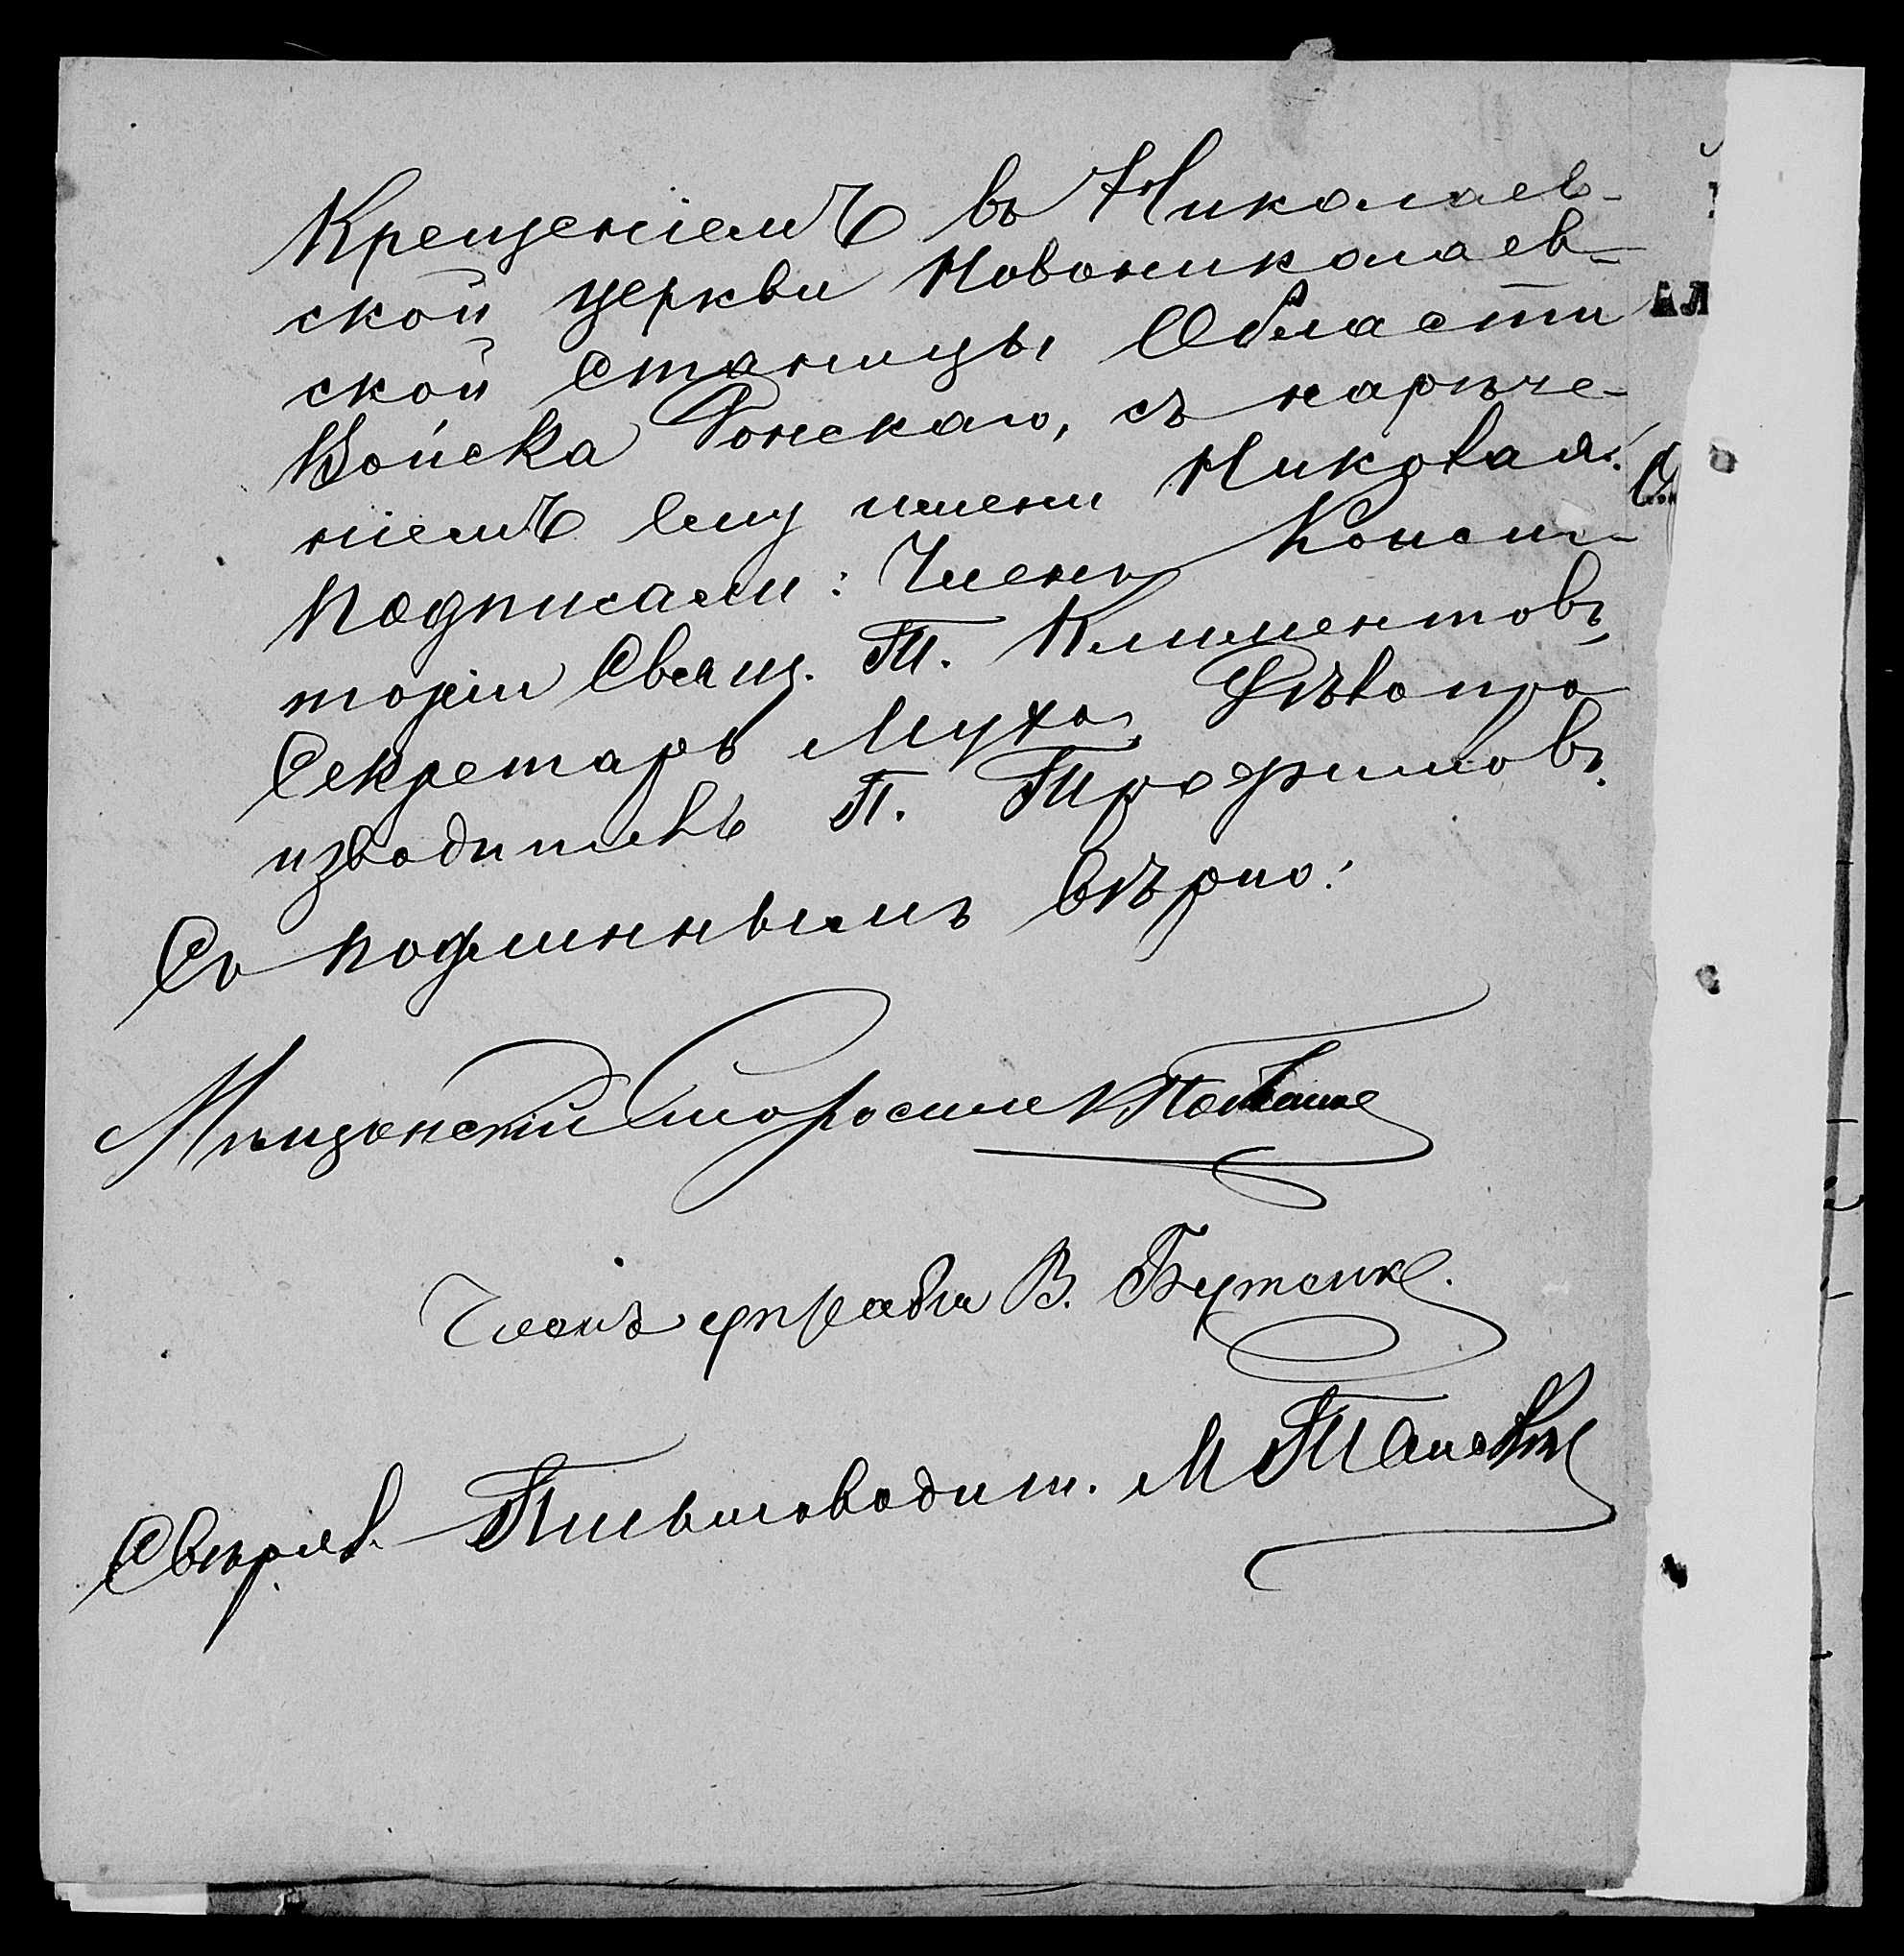 Крещеніемъ въ Николаев-
ской церкви Новониколаев-
ской станицы Области
Войска Донскаго, съ нарѣче-
ніемъ ему имени Николая.
Подписали: Члены Консис-
торіи Свящ. Т. Климентовъ,
Секретарь Мухо, Дѣлопро
изводитель П. Трофимовъ.
Съ подлиннымъ вѣрно:
Мѣщанскій Староста
Членъ управы В. Бутенко.
Свѣрял. Письмоводит. М
АЛ